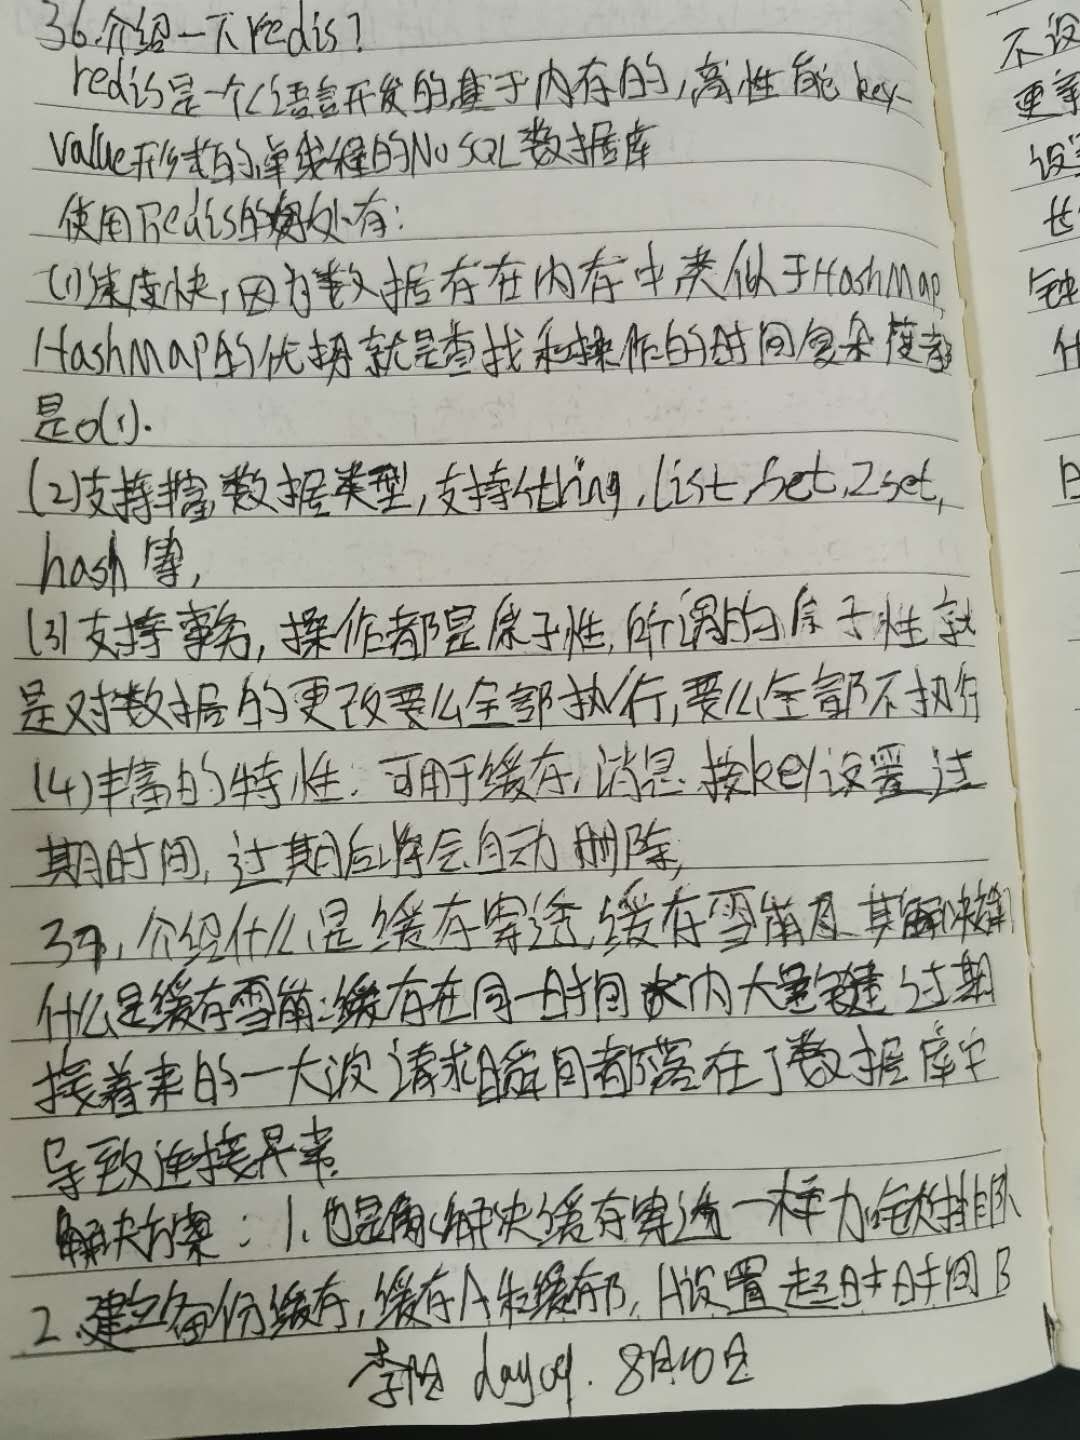 36.介绍一下redis?
redis是一个C语言开发的基于内存的,高性能key-
value形式的单线程的NoSQL数据库
使用Redis的好处有:
(1)速度快,因为数据存在内存中类似于HashMap,
HashMap的优势就是查找和操作的时间复杂度都
是O(1).
(2)支持丰富数据类型,支持string,list,Set,Zset,
hash等,
(3)支持事务,操作都是原子性,所谓的原子性就
是对数据的更改要么全部执行,要么全部不执行
(4)丰富的特性:可用于缓存,消息.按key设置过
期时间,过期后将会自动删除,
37,介绍什么是缓存穿透,缓存雪崩及其解决
什么是缓存雪崩:缓存在同一时间内大量键过期
接着来的一大波请求瞬间都落在了数据库中
导致连接异常.
解决方案:1.也是像解决缓存穿透一样加锁排队
2.建立备份缓存,缓存A和缓存B,A设置超时时间B
day09.8月10日
不设
更新
设
钟
什